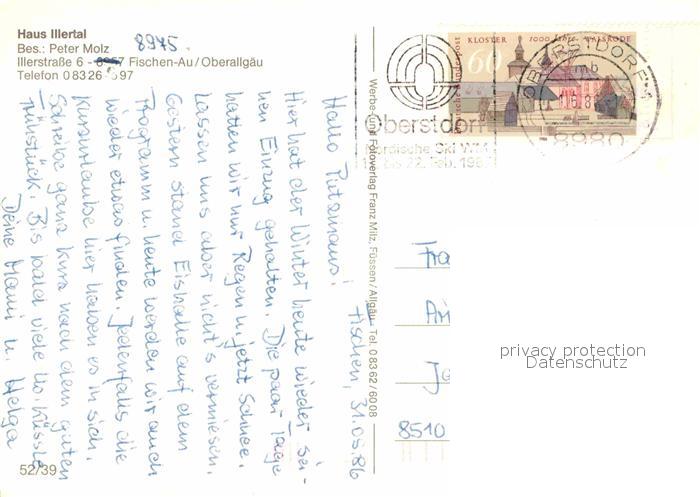 Haus Illertal
Bes.: Peter Molz
8975
Illerstraße 6 - Fischen-Au/Oberallgäu
Telefon 08326 97
Fischen, 31.05.86
Hallo Putzmaus!
Hier hat der Winter heute wieder sei-
nen Einzug gehalten. Die paar Tage
hatten wir nur Regen u. jetzt Schnee.
Lassen uns aber nicht's vermiesen.
Gestern stand Eishalle auf dem
Programm u. heute werden wir auch
wieder etwas finden. Jedenfalls die
Kururlaube hier haben es in sich.
Schreibe ganz kurz nach dem guten
Frühstück. Bis bald viele liebe Küssle
Deine Mami u. Helga
52/39
Werbe- und Fotoverlag Franz Milz, Füssen/Allgäu Tel. 08362/6008
KLOSTER 1000 Jahre WALSRODE
60
Deutsche Bundespost
OBERSTDORF
mb
8980
Oberstdorf
Nordische Ski WM
bis 22. Feb. 1987
Fra
8510
privacy protection
Datenschutz